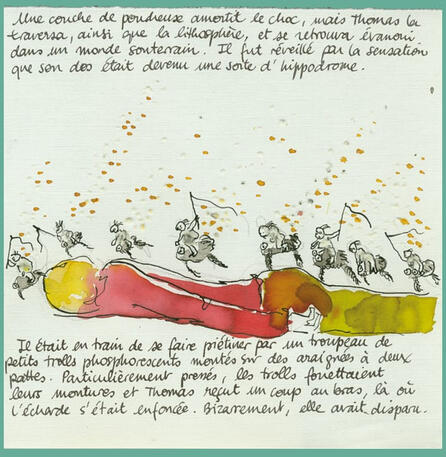 Une couche de poudreuse amortit le choc, mais Thomas la
traversa, ainsi que la lithosphère, et se retrouva évanoui
dans un monde souterrain. Il fut réveillé par la sensation
que son dos était devenu une sorte d'hippodrome.
Il était en train de se faire piétiner par un troupeau de
petits trolls phosphorescents montés sur des araignées à deux
pattes. Particulièrement pressés, les trolls fouettaient
leurs montures et Thomas reçut un coup au bras, là où
l'écharde s'était enfoncée. Bizarrement, elle avait disparu.